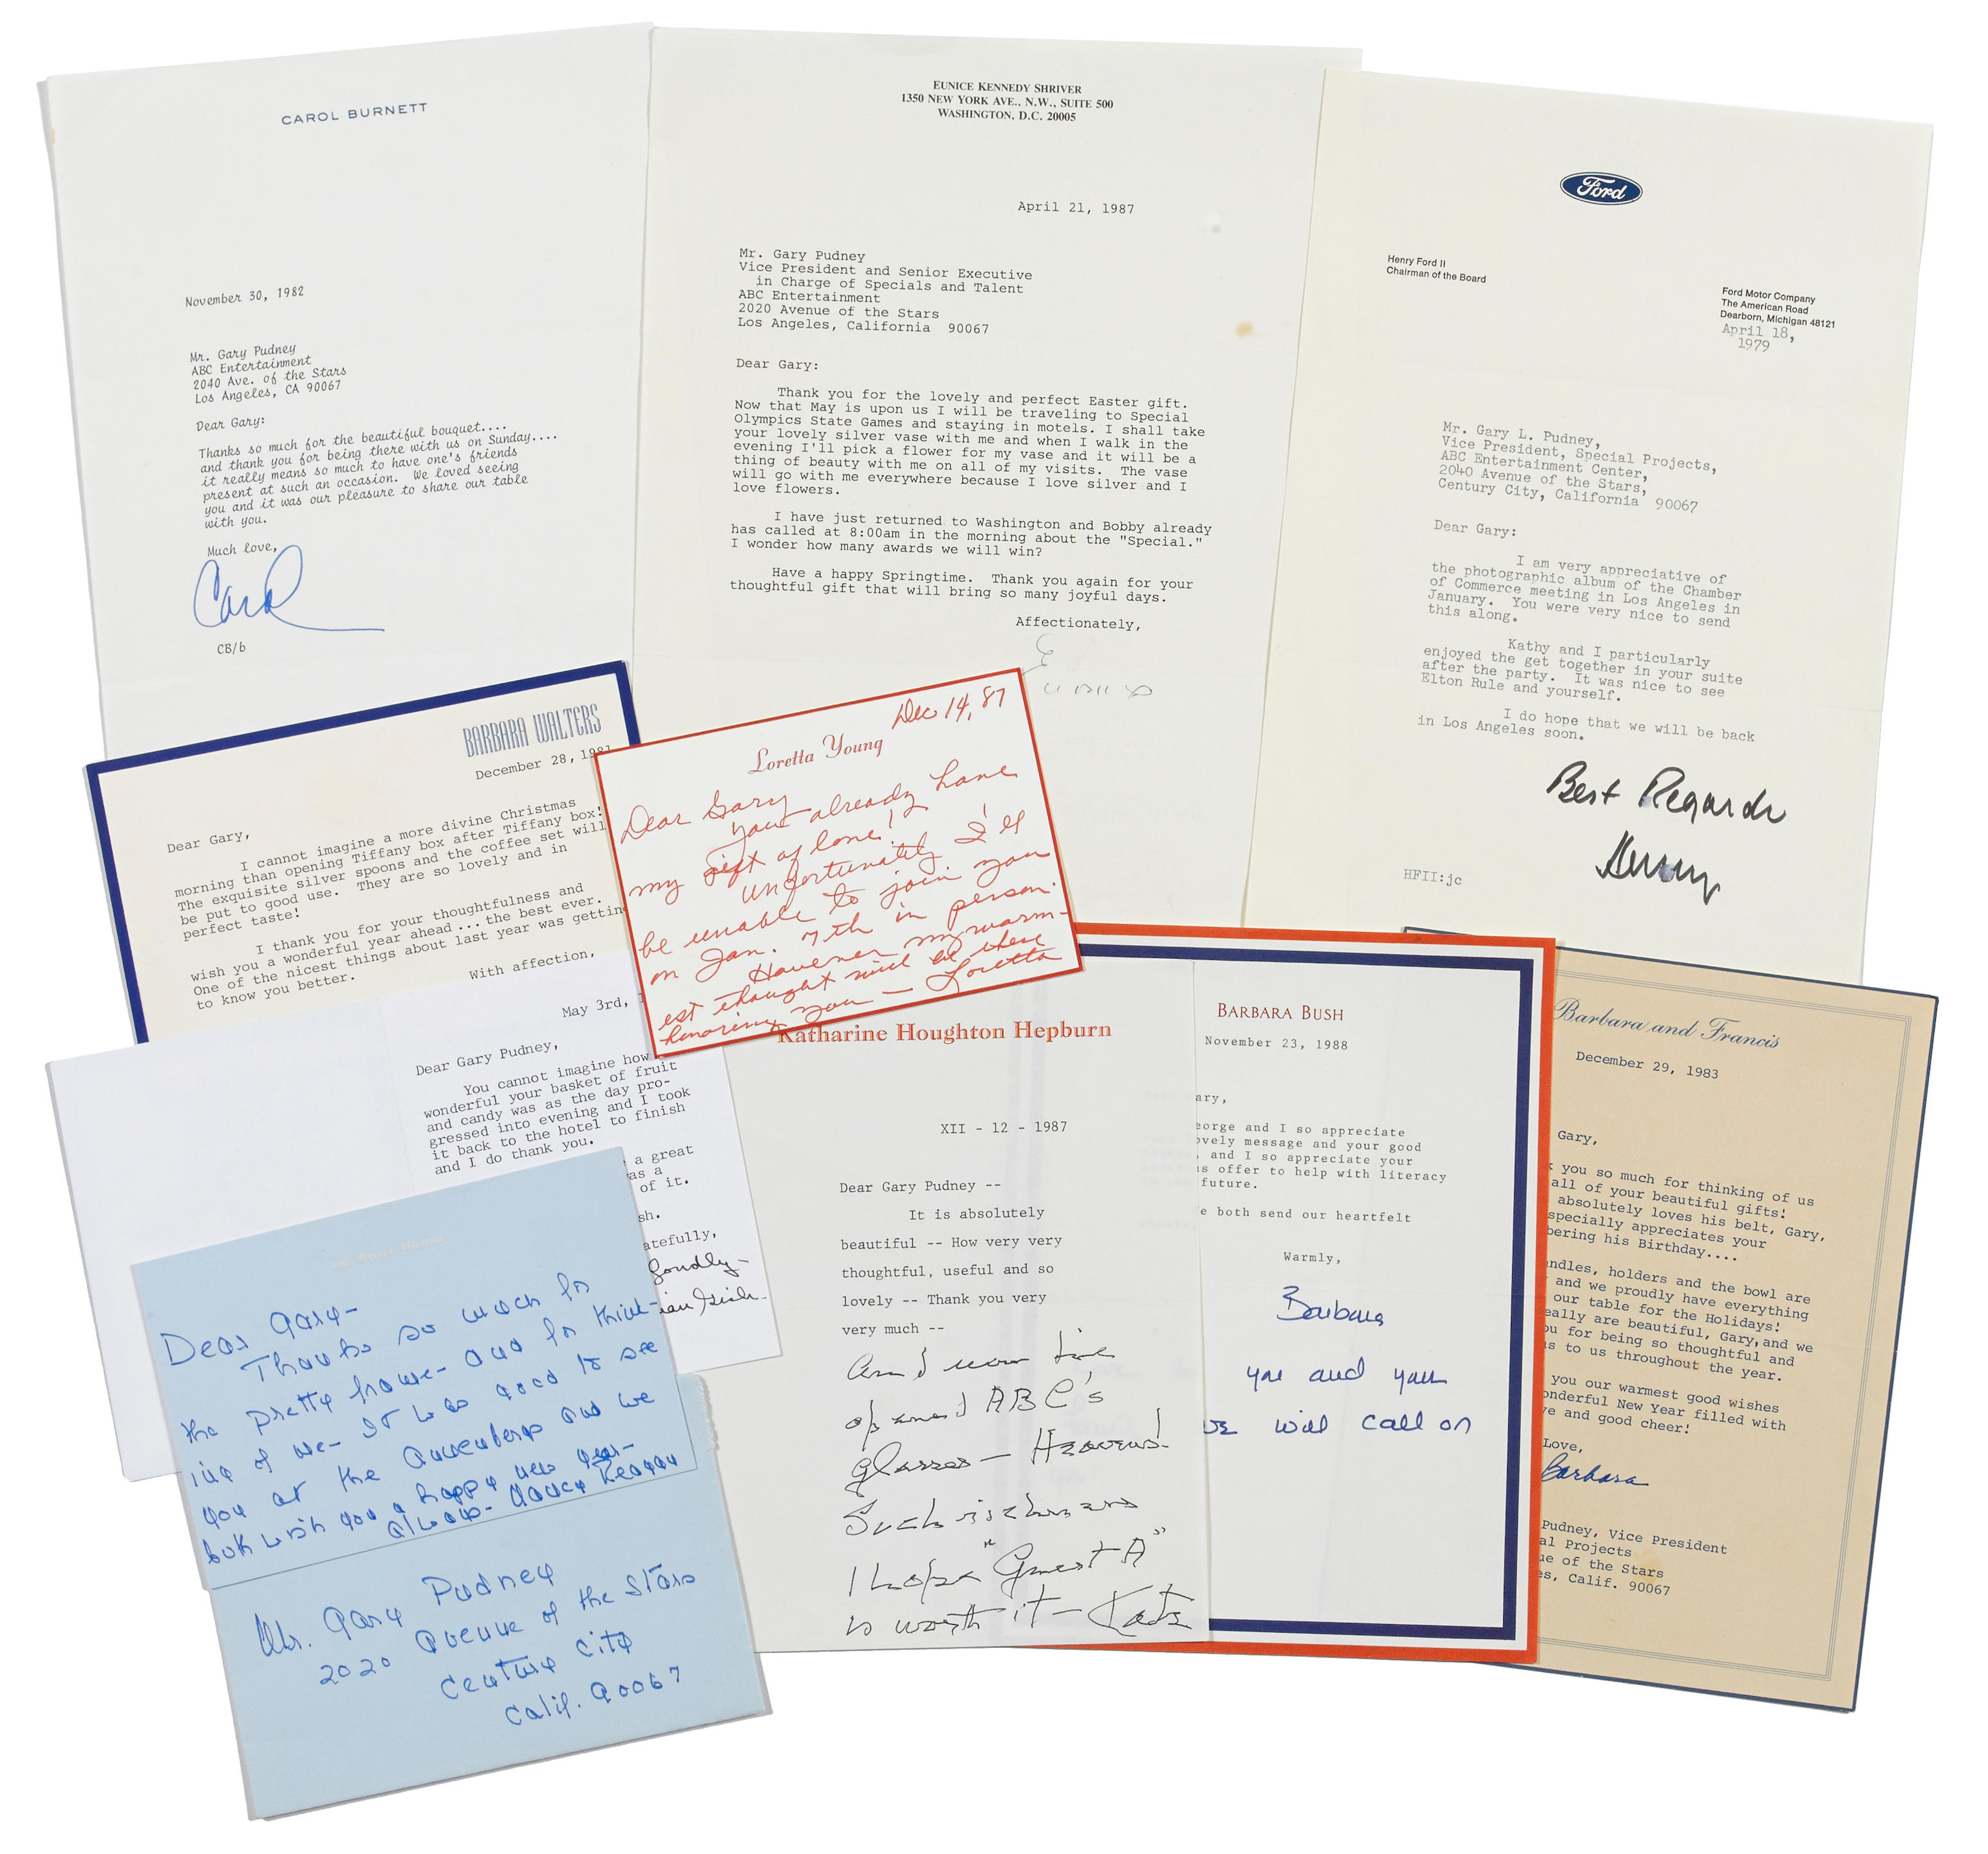 CAROL BURNETT
November 30, 1982
Mr. Gary Pudney
ABC Entertainment
2040 Ave. of the Stars
Los Angeles, CA 90067
Dear Gary:
Thanks so much for the beautiful bouquet....
and thank you for being there with us on Sunday....
it really means so much to have one's friends
present at such an occasion. We loved seeing
you and it was our pleasure to share our table
with you.
Much love,
Carol
CB/b
EUNICE KENNEDY SHRIVER
1350 NEW YORK AVE., N.W., SUITE 500
WASHINGTON, D.C. 20005
April 21, 1987
Mr. Gary Pudney
Vice President and Senior Executive
in Charge of Specials and Talent
ABC Entertainment
2020 Avenue of the Stars
Los Angeles, California 90067
Dear Gary:
Thank you for the lovely and perfect Easter gift.
Now that May is upon us I will be traveling to Special
Olympics State Games and staying in motels. I shall take
your lovely silver vase with me and when I walk in the
evening I'll pick a flower for my vase and it will be a
thing of beauty with me on all of my visits. The vase
will go with me everywhere because I love silver and I
love flowers.
I have just returned to Washington and Bobby already
has called at 8:00am in the morning about the "Special."
I wonder how many awards we will win?
Have a happy Springtime. Thank you again for your
thoughtful gift that will bring so many joyful days.
Affectionately,
Ford
Henry Ford II
Chairman of the Board
Ford Motor Company
The American Road
Dearborn, Michigan 48121
April 18,
1979
Mr. Gary L. Pudney,
Vice President, Special Projects,
ABC Entertainment Center,
2040 Avenue of the Stars,
Century City, California 90067
Dear Gary:
I am very appreciative of
the photographic album of the Chamber
of Commerce meeting in Los Angeles in
January. You were very nice to send
this along.
Kathy and I particularly
enjoyed the get together in your suite
after the party. It was nice to see
Elton Rule and yourself.
I do hope that we will be back
in Los Angeles soon.
Best Regards
Henry
HFII:jc
BARBARA WALTERS
December 28, 1981
Dear Gary,
I cannot imagine a more divine Christmas
morning than opening Tiffany box after Tiffany box!
The exquisite silver spoons and the coffee set will
be put to good use. They are so lovely and in
perfect taste!
I thank you for your thoughtfulness and
wish you a wonderful year ahead...the best ever.
One of the nicest things about last year was getting
to know you better.
With affection,
Dec 14, 87
Loretta Young
Dear Gary
You already have
my gift of love!
Unfortunately I'll
be unable to join you
on Jan. 7th in person.
However my warm-
est thought will be there
honoring you — Loretta
May 3rd,
Dear Gary Pudney,
You cannot imagine how
wonderful your basket of fruit
and candy was as the day pro-
gressed into evening and I took
it back to the hotel to finish
and I do thank you.
a great
as a
of it.
sh.
atefully,
fondly-
ian Gish-
The White House
Dear Gary-
Thanks so much for
the pretty frame- and for think-
ing of me- It was good to see
you at the Annenbergs and we
both wish you a happy new year-
always- Nancy Reagan
Mr. Gary Pudney
2020 Avenue of the Stars
Century City
Calif. 90067
Katharine Houghton Hepburn
XII - 12 - 1987
Dear Gary Pudney --
It is absolutely
beautiful -- How very very
thoughtful, useful and so
lovely -- Thank you very
very much --
And now I've
opened ABC's
glasses — Heavens!
Such richness
I hope "Guest A"
is worth it — Kate
BARBARA BUSH
November 23, 1988
ary,
eorge and I so appreciate
ovely message and your good
, and I so appreciate your
us offer to help with literacy
future.
e both send our heartfelt
Warmly,
Barbara
you and your
we will call on
Barbara and Francis
December 29, 1983
Gary,
k you so much for thinking of us
all of your beautiful gifts!
absolutely loves his belt, Gary,
specially appreciates your
bering his Birthday....
ndles, holders and the bowl are
and we proudly have everything
our table for the Holidays!
eally are beautiful, Gary, and we
ou for being so thoughtful and
us to us throughout the year.
you our warmest good wishes
onderful New Year filled with
ve and good cheer!
Love,
Barbara
Pudney, Vice President
al Projects
ue of the Stars
es, Calif. 90067